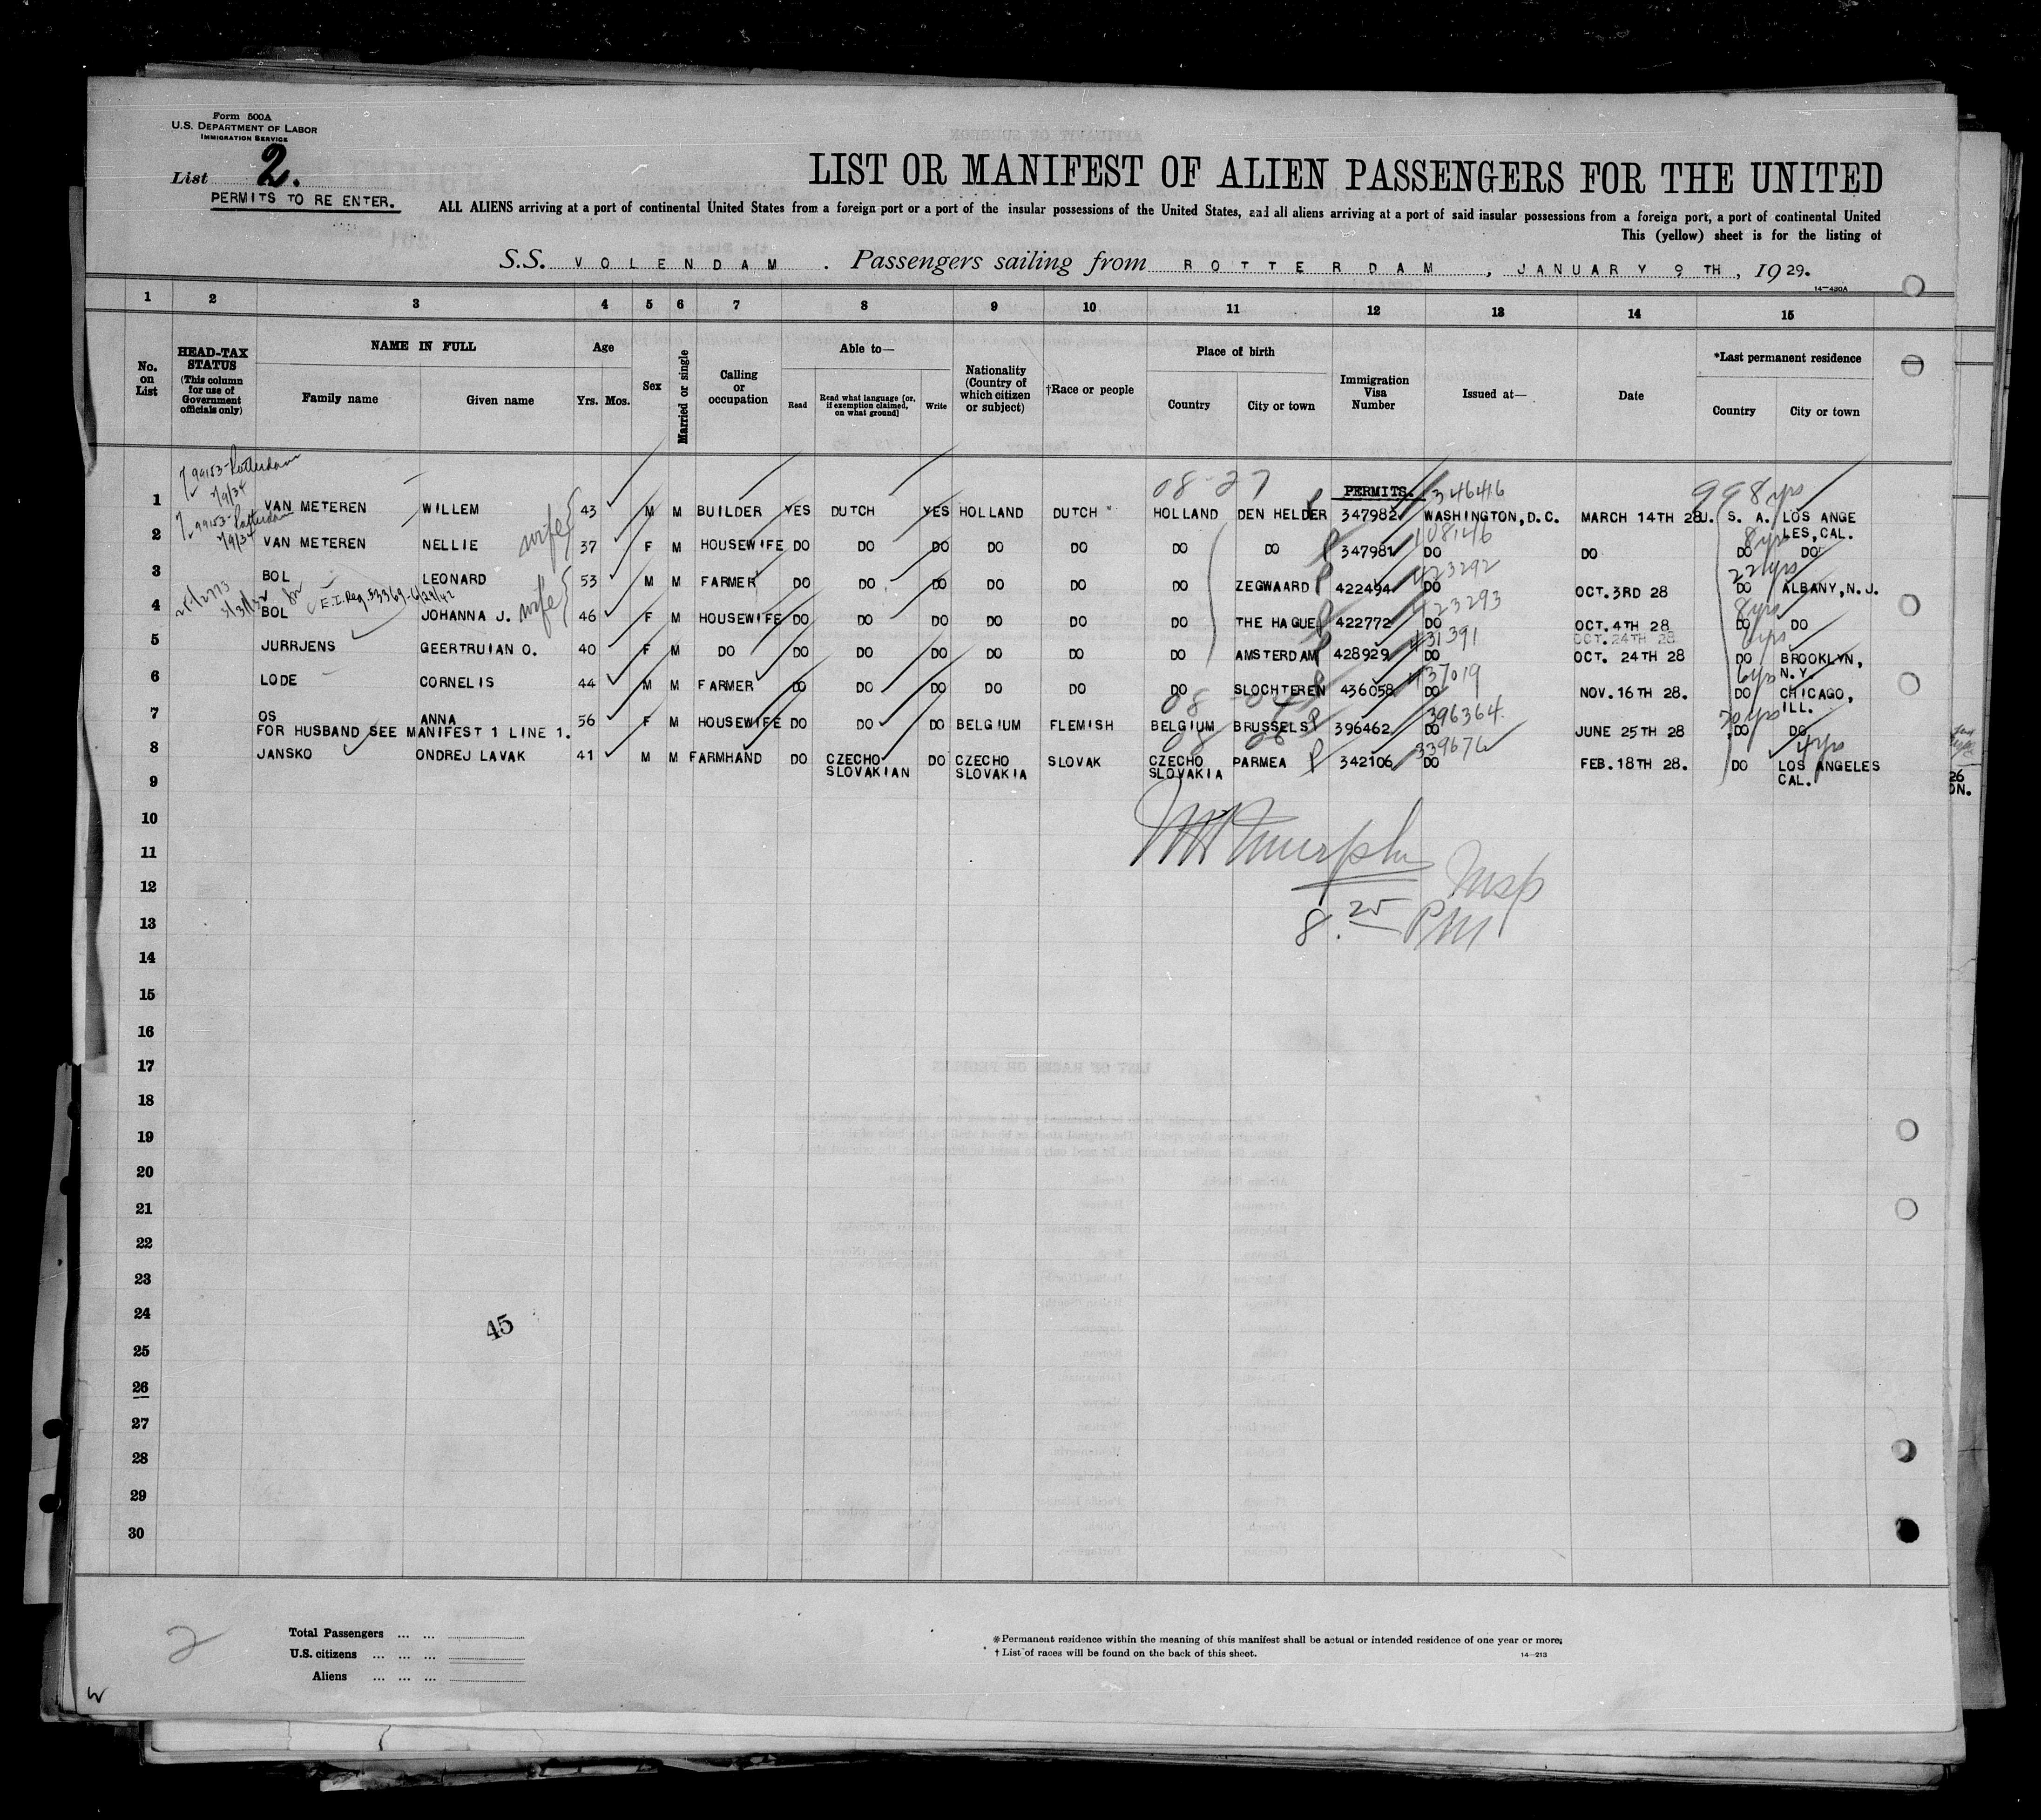 Form 500A
U.S. DEPARTMENT OF LABOR
IMMIGRATION SERVICE
List 2.
PERMITS TO RE ENTER.
LIST OR MANIFEST OF ALIEN PASSENGERS FOR THE UNITED
ALL ALIENS arriving at a port of continental United States from a foreign port or a port of the insular possessions of the United States, and all aliens arriving at a port of said insular possessions from a foreign port, a port of continental United
This (yellow) sheet is for the listing of
S.S. VOLENDAM . Passengers sailing from ROTTERDAM , JANUARY 9 TH , 19 29.
14—430A
1 2 3 4 5 6 7 8 9 10 11 12 13 14 15
No. on List
HEAD-TAX STATUS (This column for use of Government officials only)
NAME IN FULL
Family name Given name
Age
Yrs. Mos.
Sex
Married or single
Calling or occupation
Able to—
Read Read what language [or, if exemption claimed, on what ground] Write
Nationality (Country of which citizen or subject)
†Race or people
Place of birth
Country City or town
Immigration Visa Number
Issued at—
Date
*Last permanent residence
Country City or town
99153-Rotterdam
7/9/34
08-27 PERMITS. 346416 998yrs
1 VAN METEREN WILLEM 43 M M BUILDER YES DUTCH YES HOLLAND DUTCH HOLLAND DEN HELDER 347982 WASHINGTON, D.C. MARCH 14TH 28 U. S. A. LOS ANGE
LES, CAL.
99153-Rotterdam
7/9/34
wife 108146 8yrs
2 VAN METEREN NELLIE 37 F M HOUSEWIFE DO DO DO DO DO DO DO 347981 DO DO DO DO
423292 22yrs
3 BOL LEONARD 53 M M FARMER DO DO DO DO DO DO ZEGWAARD 422494 DO OCT.3RD 28 DO ALBANY, N.J.
E.I.Reg.33369-6/29/42
wife 423293 8yrs
4 BOL JOHANNA J. 46 F M HOUSEWIFE DO DO DO DO DO DO THE HAGUE 422772 DO OCT.4TH 28 DO DO
OCT.24TH 28
431391 6yrs
5 JURRJENS GEERTRUIAN O. 40 F M DO DO DO DO DO DO DO AMSTERDAM 428929 DO OCT. 24TH 28 DO BROOKLYN,
N.Y.
437019 6yrs
6 LODE CORNELIS 44 M M FARMER DO DO DO DO DO DO SLOCHTEREN 436058 DO NOV.16TH 28. DO CHICAGO,
ILL.
08-04 396364 20yrs
7 OS ANNA 56 F M HOUSEWIFE DO DO DO BELGIUM FLEMISH BELGIUM BRUSSELS 396462 DO JUNE 25TH 28 DO DO
FOR HUSBAND SEE MANIFEST 1 LINE 1.
08 06 339676 4yrs
8 JANSKO ONDREJ LAVAK 41 M M FARMHAND DO CZECHO DO CZECHO SLOVAK CZECHO PARMEA 342106 DO FEB.18TH 28. DO LOS ANGELES
SLOVAKIAN SLOVAKIA SLOVAKIA CAL.
9
10
11
12
13
8.25 PM
14
15
16
17
18
19
20
21
22
23
24
45
25
26
27
28
29
30
2
Total Passengers ... ...
U.S. citizens ... ... ...
Aliens ... ... ...
*Permanent residence within the meaning of this manifest shall be actual or intended residence of one year or more.
† List of races will be found on the back of this sheet.
14—213